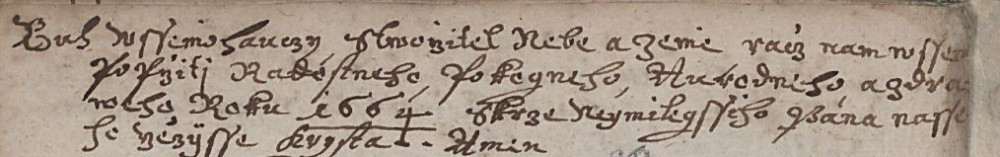 Buh wssemohauczy Stworzitel Nebe a Zeme racz nam wssem
Poprziti Radostneho, Pokogneho, Aurodneho a zdra
weho Roku 1664 Skrze Neymilegssiho Pána nasse
ho Gezisse Krysta. Amen